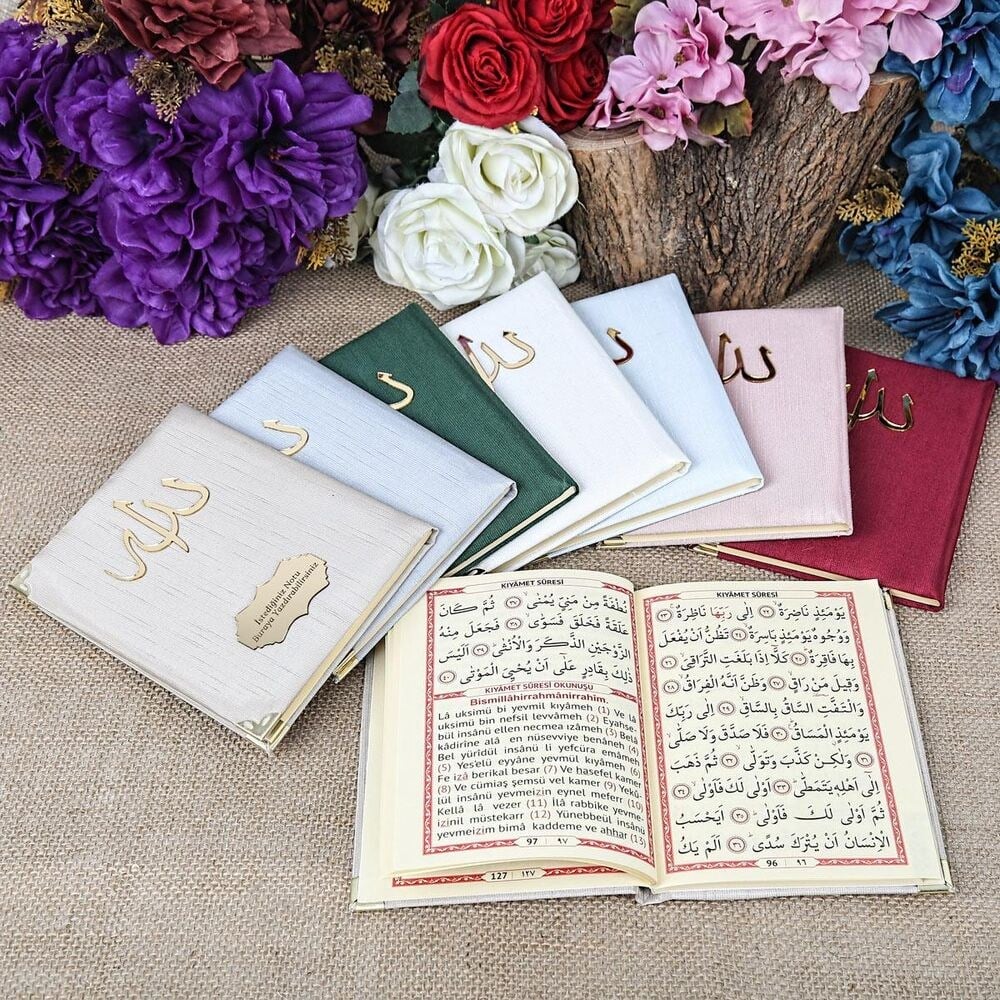 İstediğiniz Notu
Buraya Yazdırabilirsiniz
KIYÂMET SÛRESİ
يَوْمَئِذٍ نَاضِرَةٌ ﴿٢٢﴾ اِلٰى رَبِّهَا نَاظِرَةٌ ﴿٢٣﴾
وَوُجُوهٌ يَوْمَئِذٍ بَاسِرَةٌ ﴿٢٤﴾ تَظُنُّ اَنْ يُفْعَلَ
بِهَا فَاقِرَةٌ ﴿٢٥﴾ كَلَّا اِذَا بَلَغَتِ التَّرَاقِيَ ﴿٢٦﴾
وَقِيلَ مَنْ رَاقٍ ﴿٢٧﴾ وَظَنَّ اَنَّهُ الْفِرَاقُ ﴿٢٨﴾
وَالْتَفَّتِ السَّاقُ بِالسَّاقِ ﴿٢٩﴾ اِلٰى رَبِّكَ
يَوْمَئِذٍ الْمَسَاقُ ﴿٣٠﴾ فَلَا صَدَّقَ وَلَا صَلّٰى
﴿٣١﴾ وَلٰكِنْ كَذَّبَ وَتَوَلّٰى ﴿٣٢﴾ ثُمَّ ذَهَبَ
اِلٰى اَهْلِهِ يَتَمَطّٰى ﴿٣٣﴾ اَوْلٰى لَكَ فَاَوْلٰى ﴿٣٤﴾
ثُمَّ اَوْلٰى لَكَ فَاَوْلٰى ﴿٣٥﴾ اَيَحْسَبُ
الْاِنْسَانُ اَنْ يُتْرَكَ سُدًى ﴿٣٦﴾ اَلَمْ يَكُ
96 ٩٦
KIYÂMET SÛRESİ
نُطْفَةً مِنْ مَنِيٍّ يُمْنٰى ﴿٣٧﴾ ثُمَّ كَانَ
عَلَقَةً فَخَلَقَ فَسَوّٰى ﴿٣٨﴾ فَجَعَلَ مِنْهُ
الزَّوْجَيْنِ الذَّكَرَ وَالْاُنْثٰى ﴿٣٩﴾ اَلَيْسَ
ذٰلِكَ بِقَادِرٍ عَلٰٓى اَنْ يُحْيِيَ الْمَوْتٰى ﴿٤٠﴾
KIYÂMET SÛRESİ OKUNUŞU
Bismillâhirrahmânirrahîm.
Lâ uksimü bi yevmil kıyâmeh (1) Ve lâ
uksimü bin nefsil levvâmeh (2) Eyahse-
bül insânü ellen necmea ızâmeh (3) Belâ
kâdirîne alâ en nüsevviye benâneh (4)
Bel yürîdül insânü li yefcüra emâmeh
(5) Yes'elü eyyâne yevmül kıyâmeh (6)
Fe izâ berikal besar (7) Ve hasefel kamer
(8) Ve cümiaş şemsü vel kamer (9) Yekû-
lül insânü yevmeizin eynel meferr (10)
Kellâ lâ vezer (11) İlâ rabbike yevme-
izinil müstekarr (12) Yünebbeül insânü
yevmeizim bimâ kaddeme ve ahhar (13)
97 ٩٧
127 ١٢٧